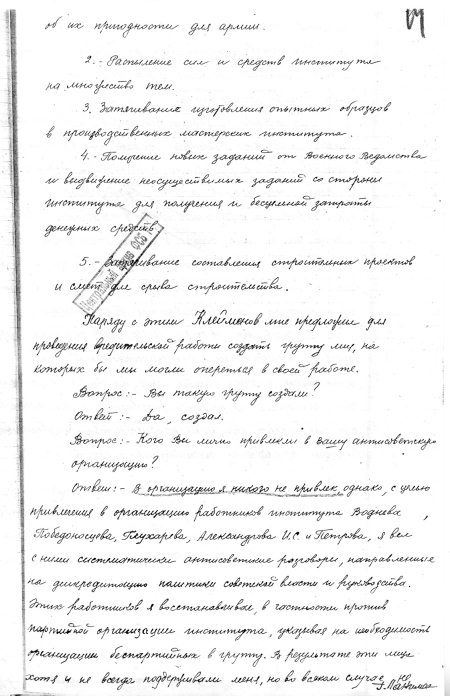 об их пригодности для армии.
2.- Распыление сил и средств института
на множество тем.
3. Затягивание изготовления опытных образцов
в производственных мастерских института.
4.- Получение новых заданий от Военного Ведомства
и выдвижение неосуществимых заданий со стороны
института для получения и бесцельной затраты
денежных средств.
5.- Затягивание составления строительных проектов
и смет для срыва строительства.
Наряду с этим Клейменов мне предложил для
проведения вредительской работы создать группу лиц, на
которых бы мы могли опереться в своей работе.
Вопрос:- Вы такую группу создали?
Ответ:- Да, создал.
Вопрос:- Кого Вы лично привлекли в вашу антисоветскую
организацию?
Ответ:- В организацию я никого не привлек, однако, с целью
привлечения в организацию работников института Воднева,
Победоносцева, Глухарева, Александрова И.С. и Петрова, я вел
с ними систематически антисоветские разговоры, направленные
на дискредитацию политики советской власти и руководства.
Этих работников я восстанавливал, в частности против
партийной организации института, указывая на необходимость
организации беспартийных в группу. В результате эти лица
хотя и не всегда поддерживали меня, но во всяком случае не
Г. Лангемак
Центральный архив ФСБ